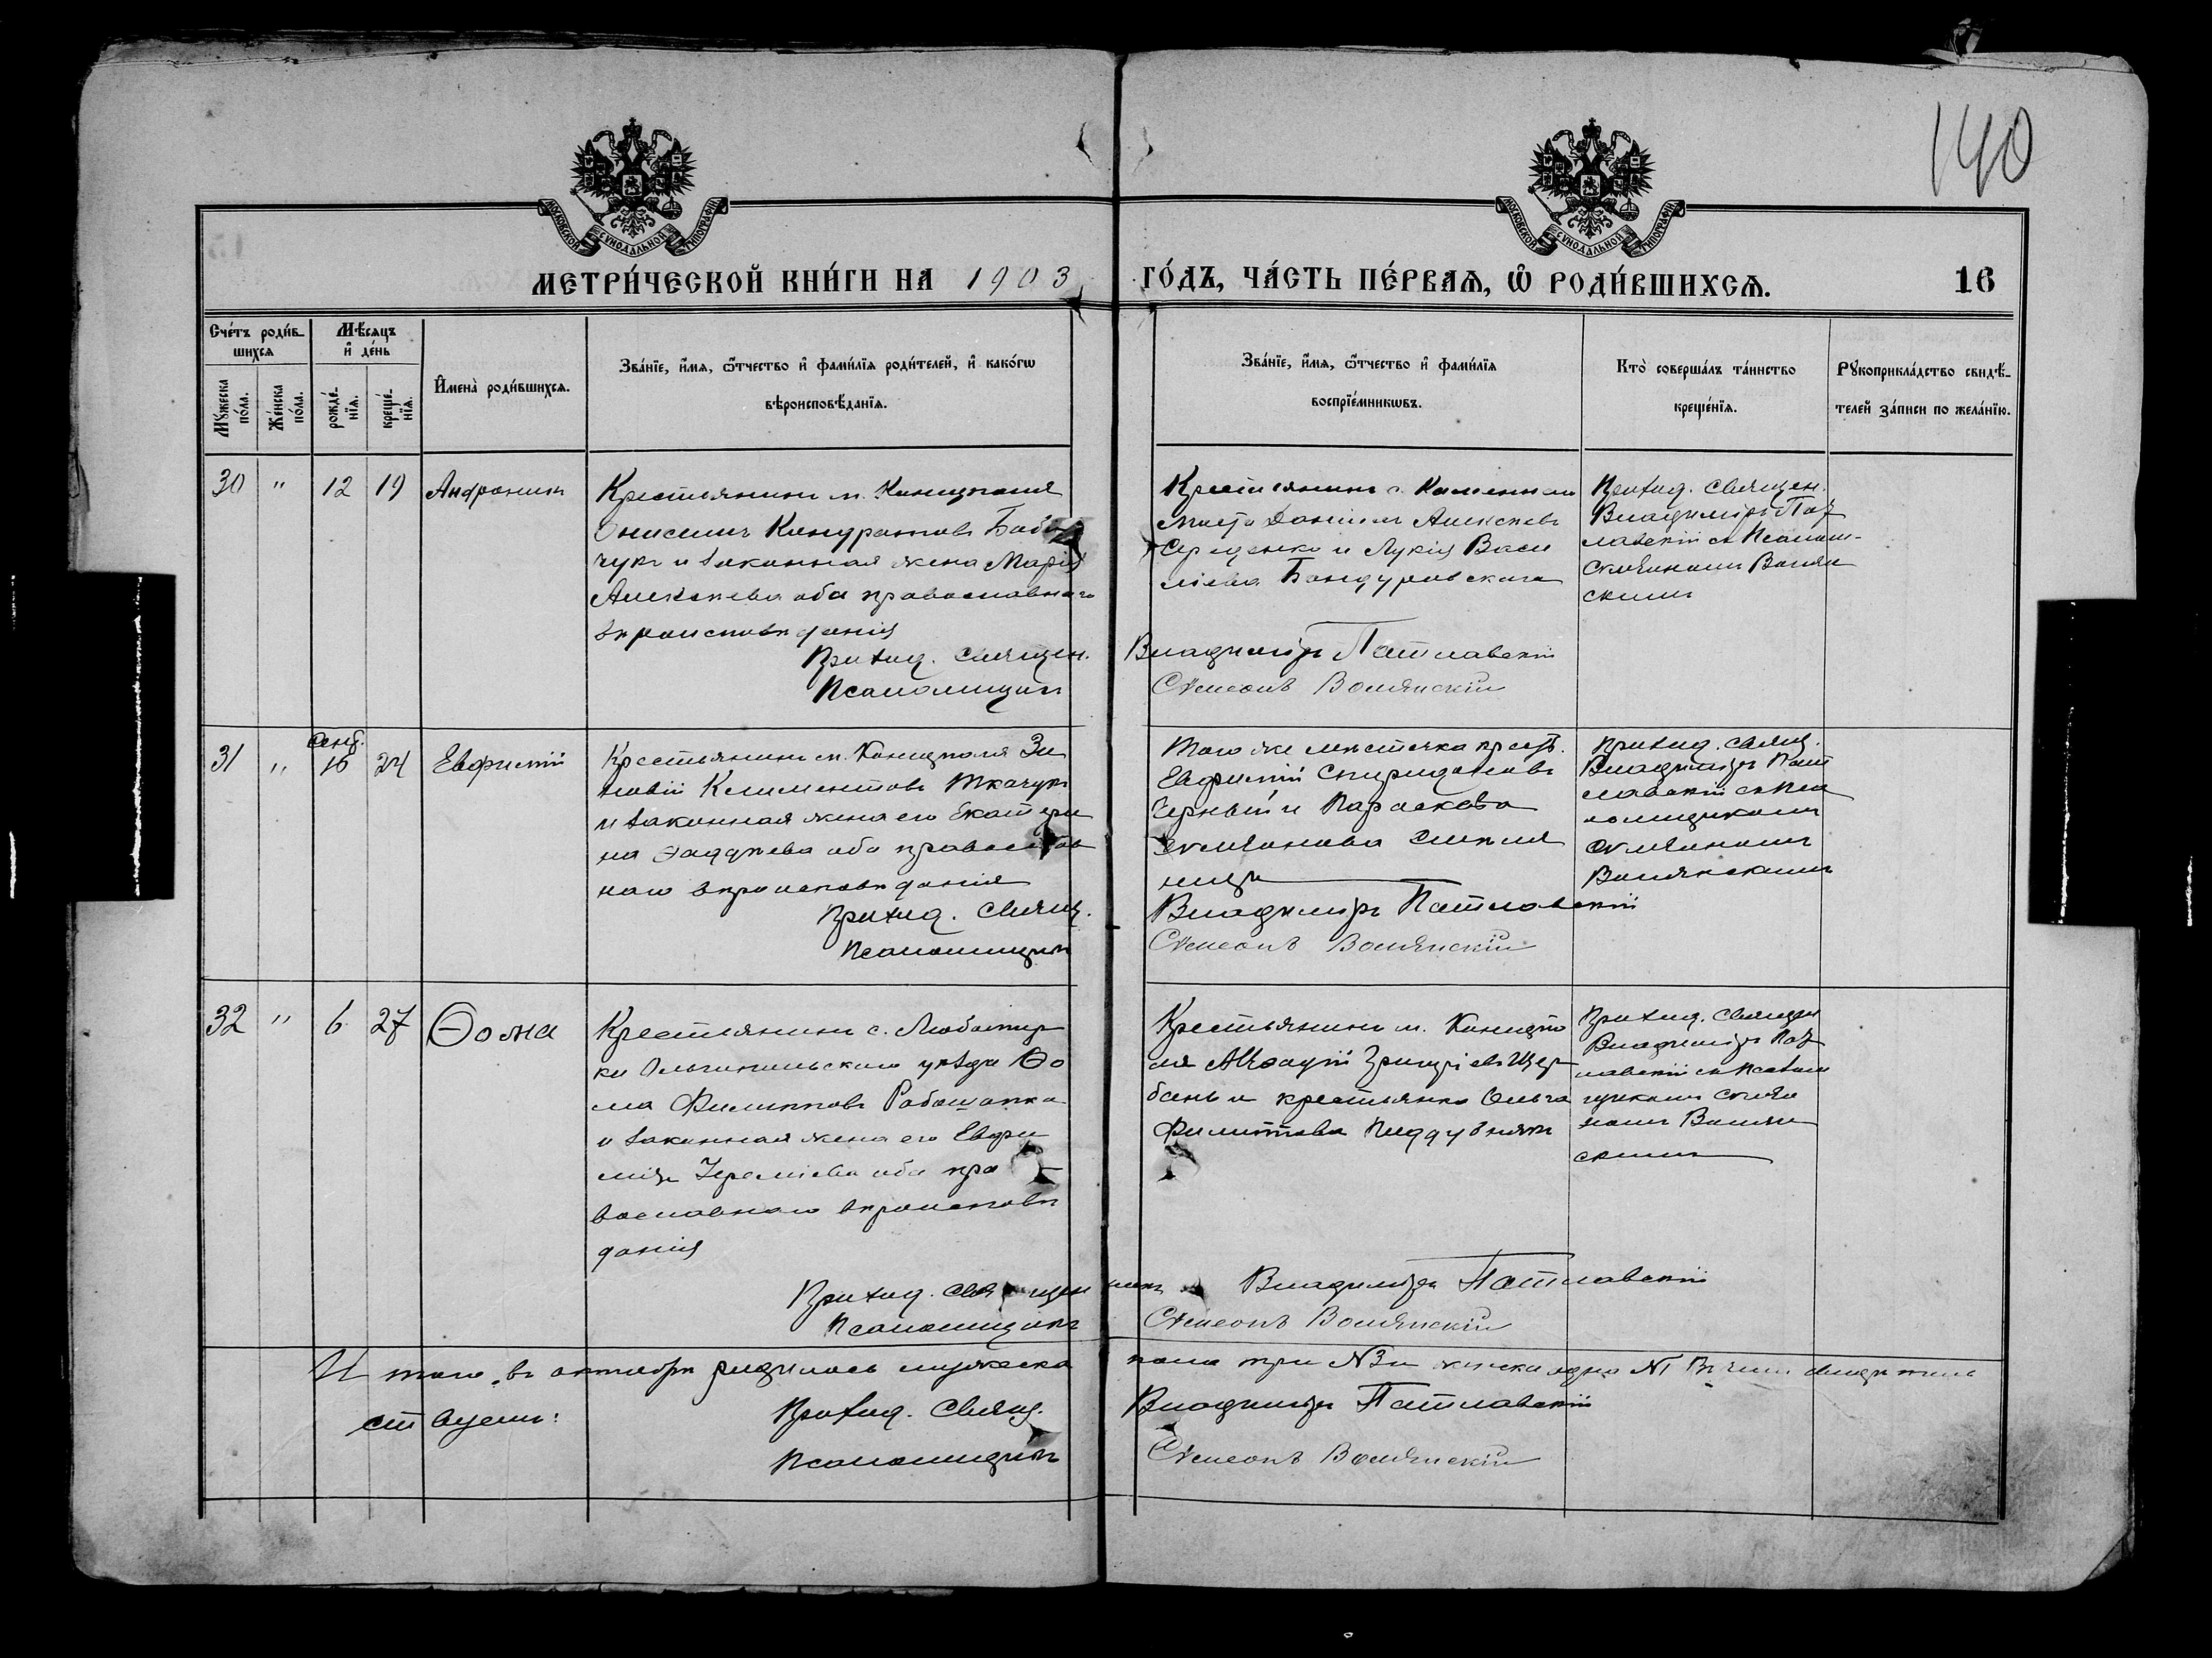 140
МОСКОВСКОЙ СУНОДАЛЬНОЙ ТИПОГРАФІИ
МОСКОВСКОЙ СУНОДАЛЬНОЙ ТИПОГРАФІИ
МЕТРИ́ЧЕСКОЙ КНИ́ГИ НА 1903 ГО́ДЪ, ЧА́СТЬ ПЕ́РВАѦ, Ѡ҆ РОДИ́ВШИХСѦ.
16
Сче́тъ роди́в-
шихсѧ
Мѣ́сѧцъ
и҆ де́нь
Мꙋ́жеска
по́ла.
Же́нска
по́ла.
рожде́-
нїѧ.
креще́-
нїѧ.
И҆мена̀ роди́вшихсѧ.
Зва́нїе, и҆́мѧ, ѻ҆́тчество и҆ фами́лїѧ роди́телей, и҆ како́гѡ
вѣроисповѣ́данїѧ.
Зва́нїе, и҆́мѧ, ѻ҆́тчество и҆ фами́лїѧ
воспрїе́мникѡвъ.
Кто̀ соверша́лъ та́инство
креще́нїѧ.
Рꙋкоприкла́дство свидѣ́-
телей за́писи по жела́нїю.
30 " 12 19 Андроникъ
Крестьянинъ м. Конецполя
Онисимъ Кондратовъ Бабі
чукъ и законная жена Марія
Алексѣева оба православнаго
вѣроисповѣданія
Приход. Священ.
Псаломщикъ
Крестьянинъ с. Каменная
Алексѣевъ
Середенко и Лукія Васи
ліева Бондуровскаго
Владиміръ Патлавскій
Сѵмеонъ Волянскій
Приход. Священ.
Владиміръ Пат
лавскій съ Псалом-
Сѵмеономъ Волян
скимъ
31 " Сент. 16 24 Евфимій
Крестьянинъ м. Конецполя Зи
новій Климентовъ Ткачукъ
и законная жена его Екатери
на Ѳаддѣева оба православ
наго вѣроисповѣданія
Приход. Священ.
Псаломщикъ
Того же мѣстечка крест.
Евфимій Спиридоновъ
Черный и Параскева
Сѵмеонова
Владиміръ Патлавскій
Сѵмеонъ Волянскій
Приход. Свящ.
Владиміръ Пат
лавскій съ Пса
ломщикомъ
Сѵмеономъ
Волянскимъ
32 " 6 27 Ѳома
Крестьянинъ с. Любомир
ки уѣзда Ѳо
ма Филипповъ Рабошапка
и законная жена его Евфи
мія Іереміева оба пра
вославнаго вѣроисповѣ
данія
Приход. Священникъ
Псаломщикъ
Крестьянинъ м. Конецпо
ля Григоріевъ Щер
бань и крестьянка Ольга
Филиппова Поддубнякъ
Владиміръ Патлавскій
Сѵмеонъ Волянскій
Приход. Священ
Владиміръ Пат
лавскій съ Псалом
щикомъ Сѵмео
номъ Волян
скимъ
И того въ октябрѣ родилось мужеска пола три №3 и женска одно №1 въ чемъ свидѣтель
ствуемъ:
Приход. Свящ. Владиміръ Патлавскій
Псаломщикъ Сѵмеонъ Волянскій